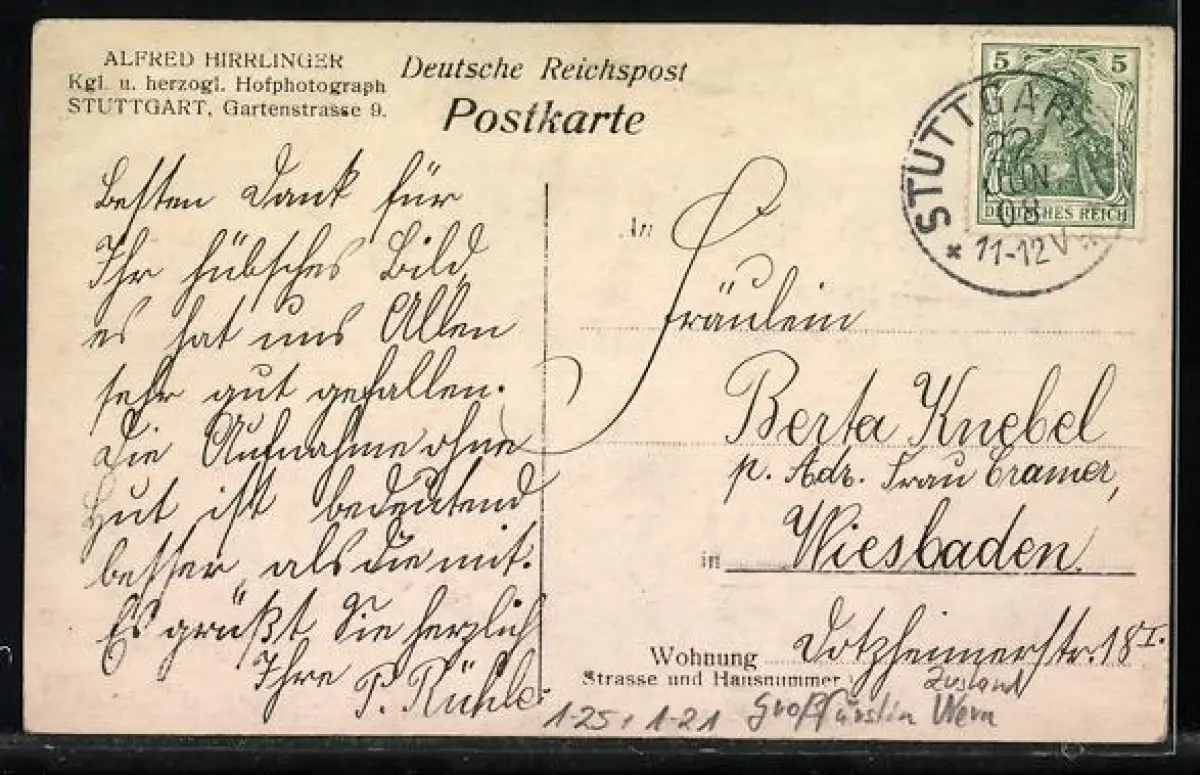 ALFRED HIRRLINGER
Kgl. u. herzogl. Hofphotograph
STUTTGART, Gartenstrasse 9.
Deutsche Reichspost
Postkarte
5 5
DEUTSCHES REICH
STUTTGART
22
JUN
08
* 11-12V
Besten Dank für
Ihr hübsches Bild,
es hat uns Allen
sehr gut gefallen.
Die Aufnahme ohne
Hut ist bedeutend
besser, als die mit.
Es grüßt Sie herzlich
Ihre P. Rühle.
An
Fräulein
Berta Knebel
p. Adr. Frau Cramer,
in Wiesbaden.
Wohnung Dotzheimerstr. 18 I.
Strasse und Hausnummer
Zustand
1-25, 1-21 Großfürstin Wera